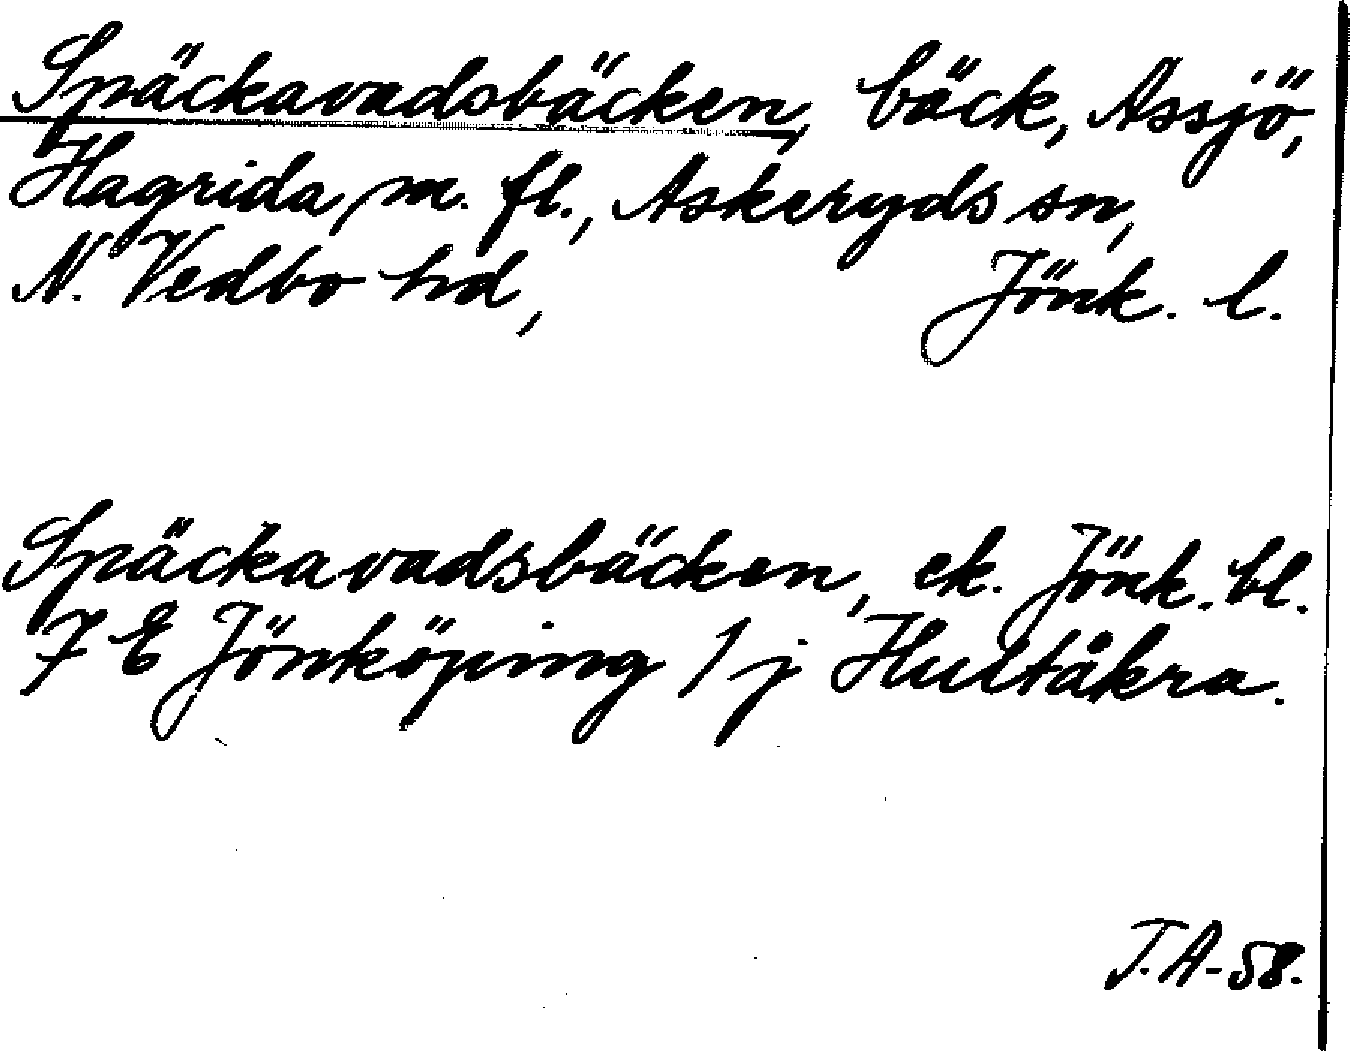 Späckavadsbäcken, bäck, Assjö,
Hagrida, m. fl., Askeryds sn,
N. Vedbo hd, Jönk. l.
Späckavadsbäcken, ek. Jönk. bl.
7 E Jönköping 1 j Hultåkra.
T.A-58.